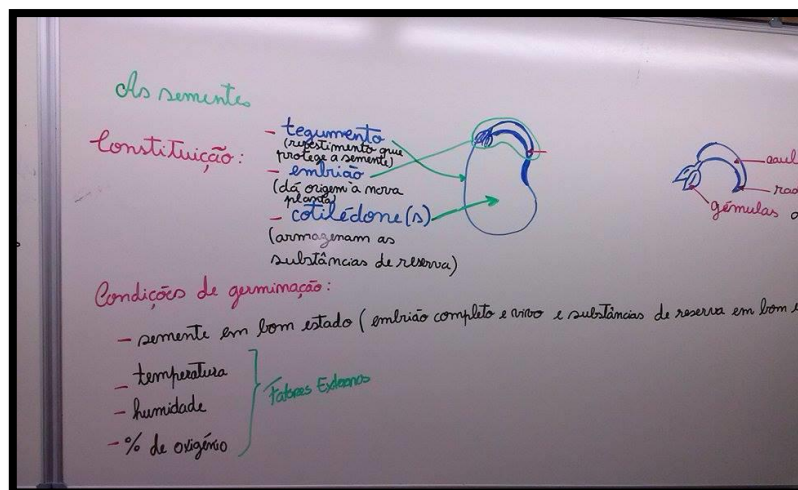 As sementes
Constituição:
- tegumento
(revestimento que
protege a semente)
- embrião
(dá origem à nova
planta)
- cotilédone(s)
(armazenam as
substâncias de reserva)
gémulas
Condições de germinação:
- semente em bom estado (embrião completo e vivo e substâncias de reserva em bom
- temperatura
- humidade
- % de oxigénio
Fatores Externos